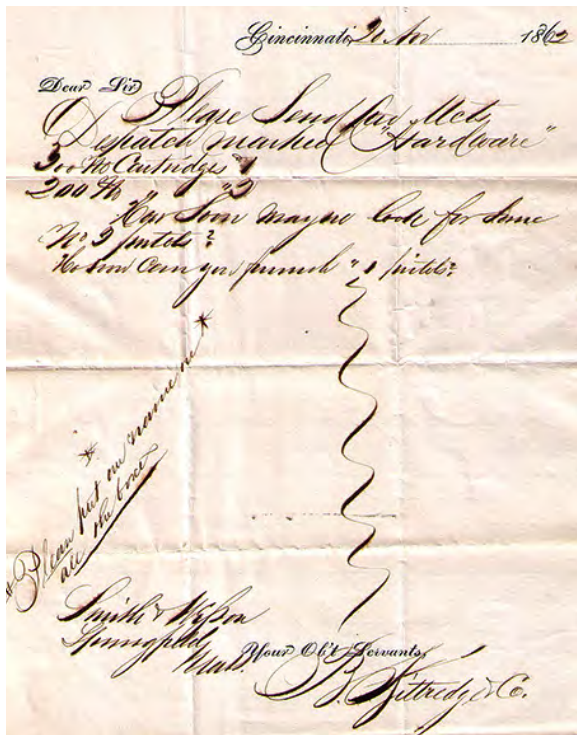 Cincinnati, 20 Nov 1862
Dear Sir
Please Send Via Mcts
Despatch marked "Hardware"
300 M Cartridges "1
200 M " " "2
How Soon may we look for some
No 2 pistols?
How soon can you furnish " 1 pistols?
* Please put our name on *
all the boxes *
Smith & Wesson
Springfield
Mass.
Your Ob't Servants,
B. Kittredge & Co.